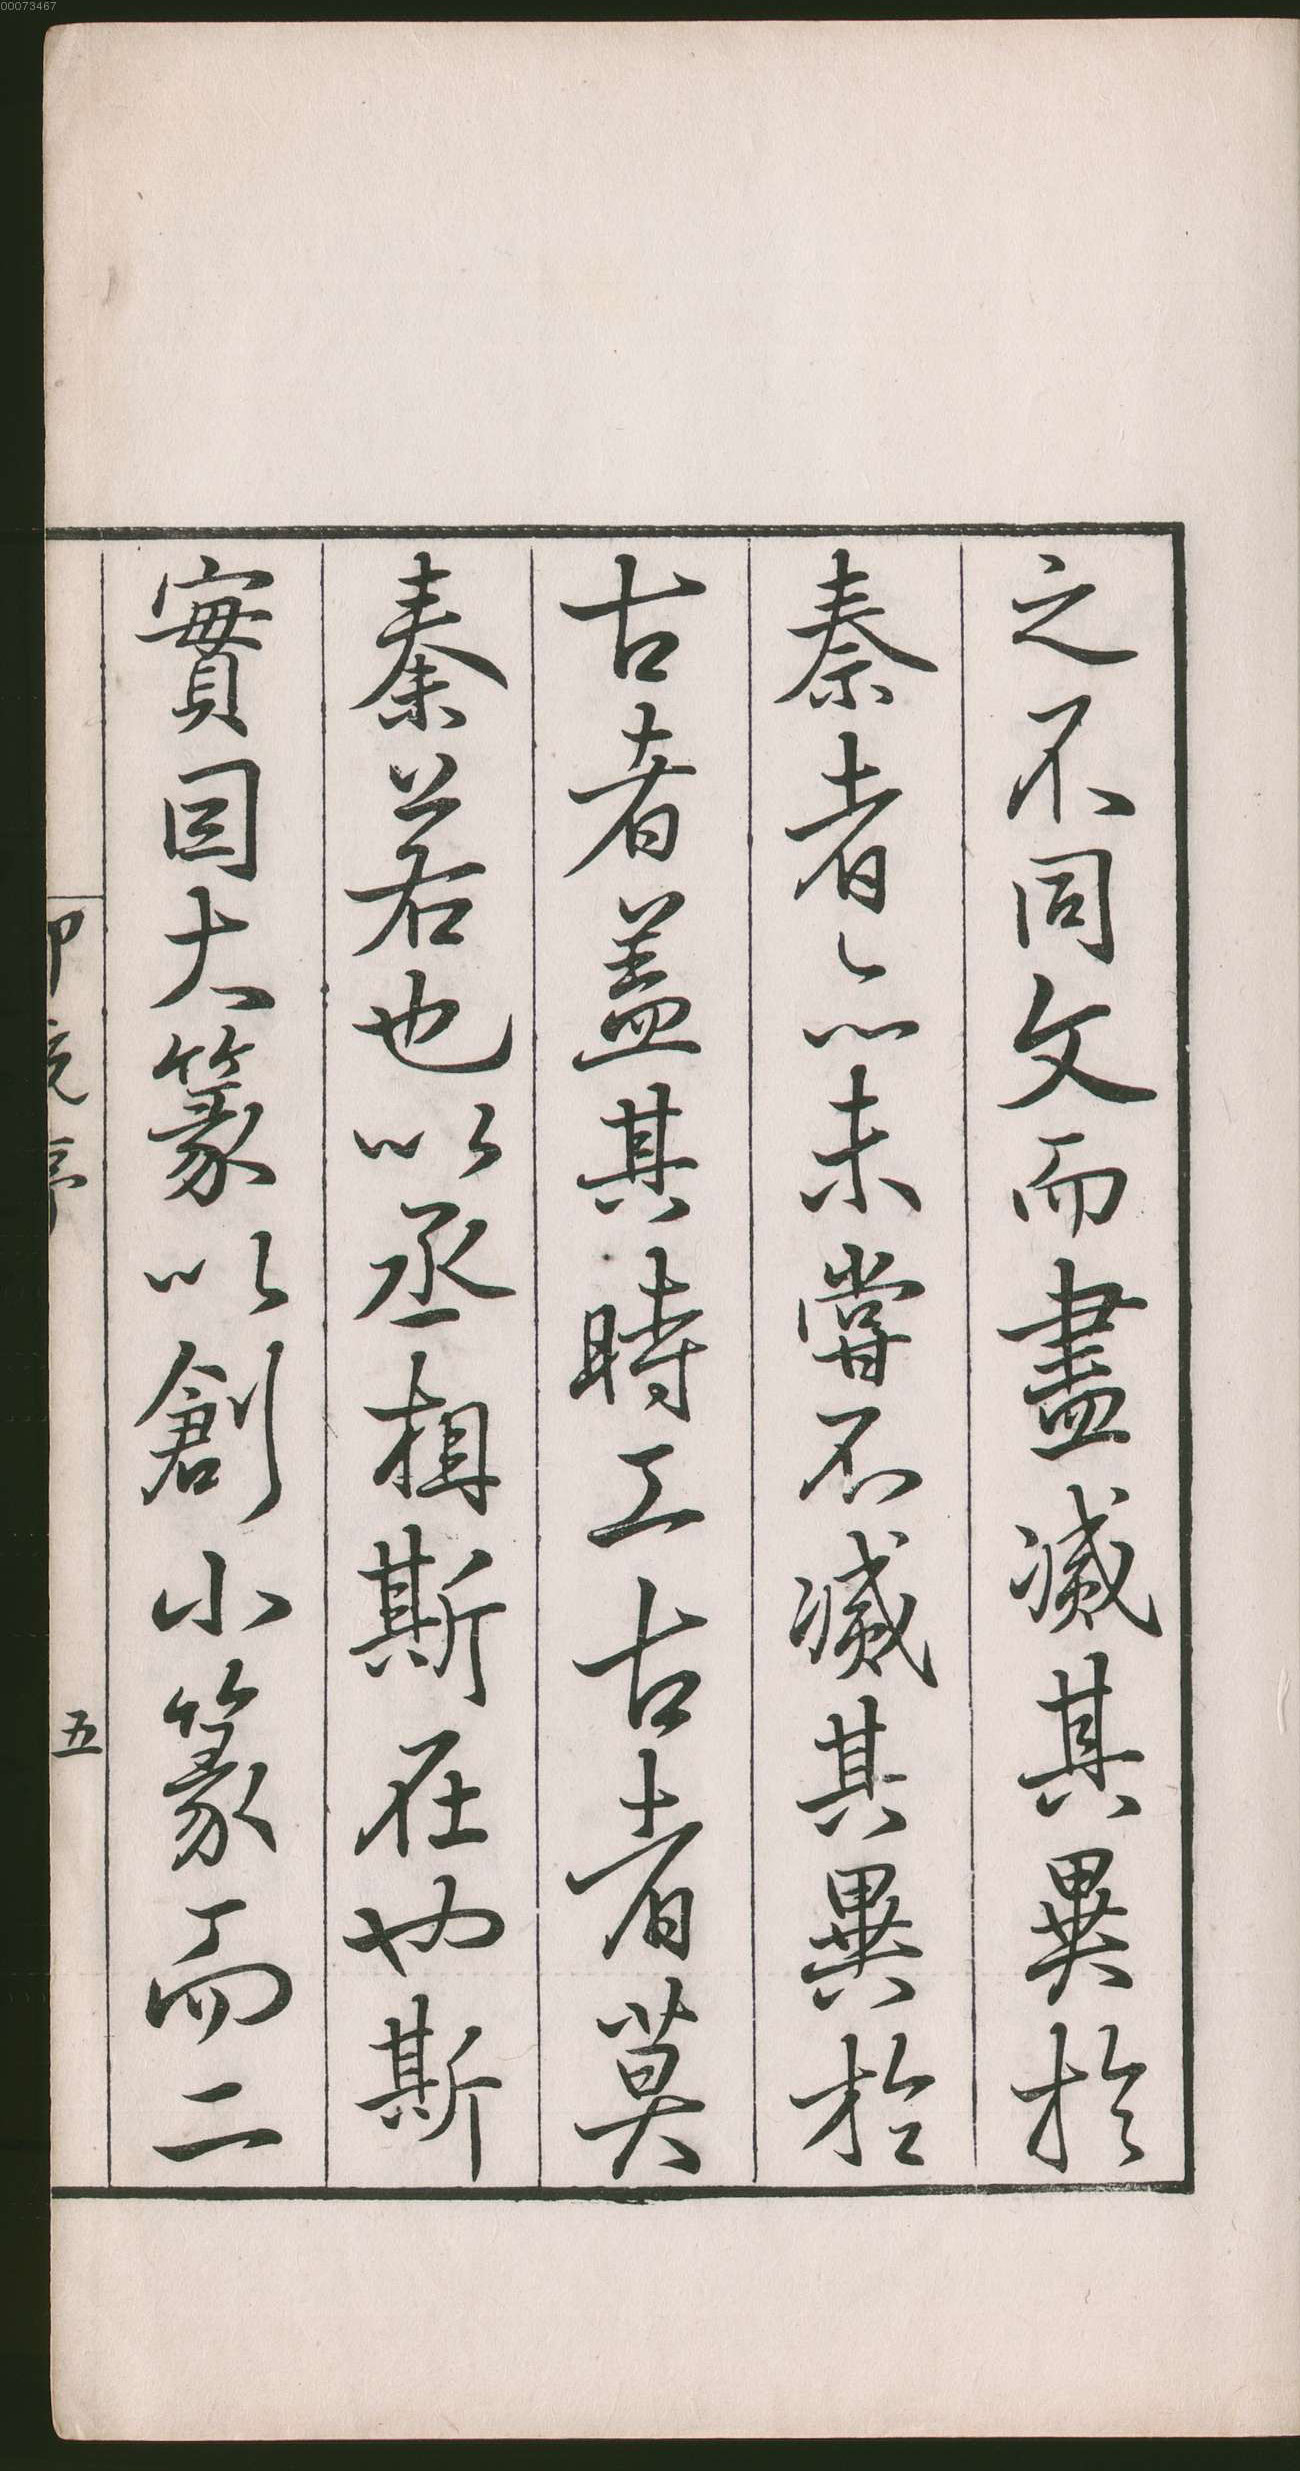 之不同文而盡滅其異於
秦者亦未嘗不滅其異於
古者蓋其時工古者莫
秦若也以丞相斯在也斯
實因大篆以創小篆而二
印究序
五
00073467